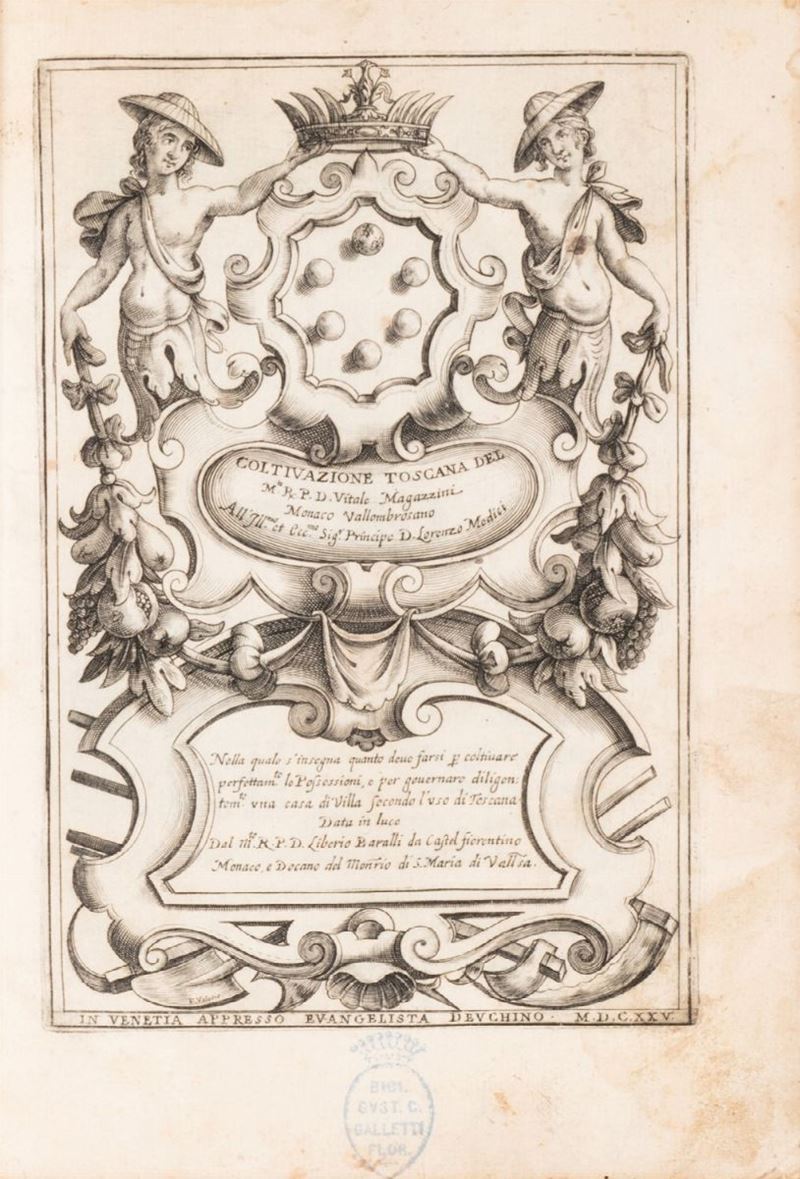 COLTIVAZIONE TOSCANA DEL
M.to R. P. D. Vitale Magazzini
Monaco Vallombrosano
All' Ill.mo et Ecc.mo Sig.r Principe D. Lorenzo Medici
Nella quale s'insegna quanto deue farsi p coltiuare
perfettam.te le Possessioni, e per gouernare diligen:
tem.te vna casa di Villa secondo l'vso di Toscana
Data in luce
Dal M. R. P. D. Liberio Baralli da Castel fiorentino
Monaco, e Decano del Mon.rio di S. Maria di
IN VENETIA APPRESSO EVANGELISTA DEVCHINO. M.D.C.XXV.
BIBL.
GVST. C.
GALLETTI
FLOR.